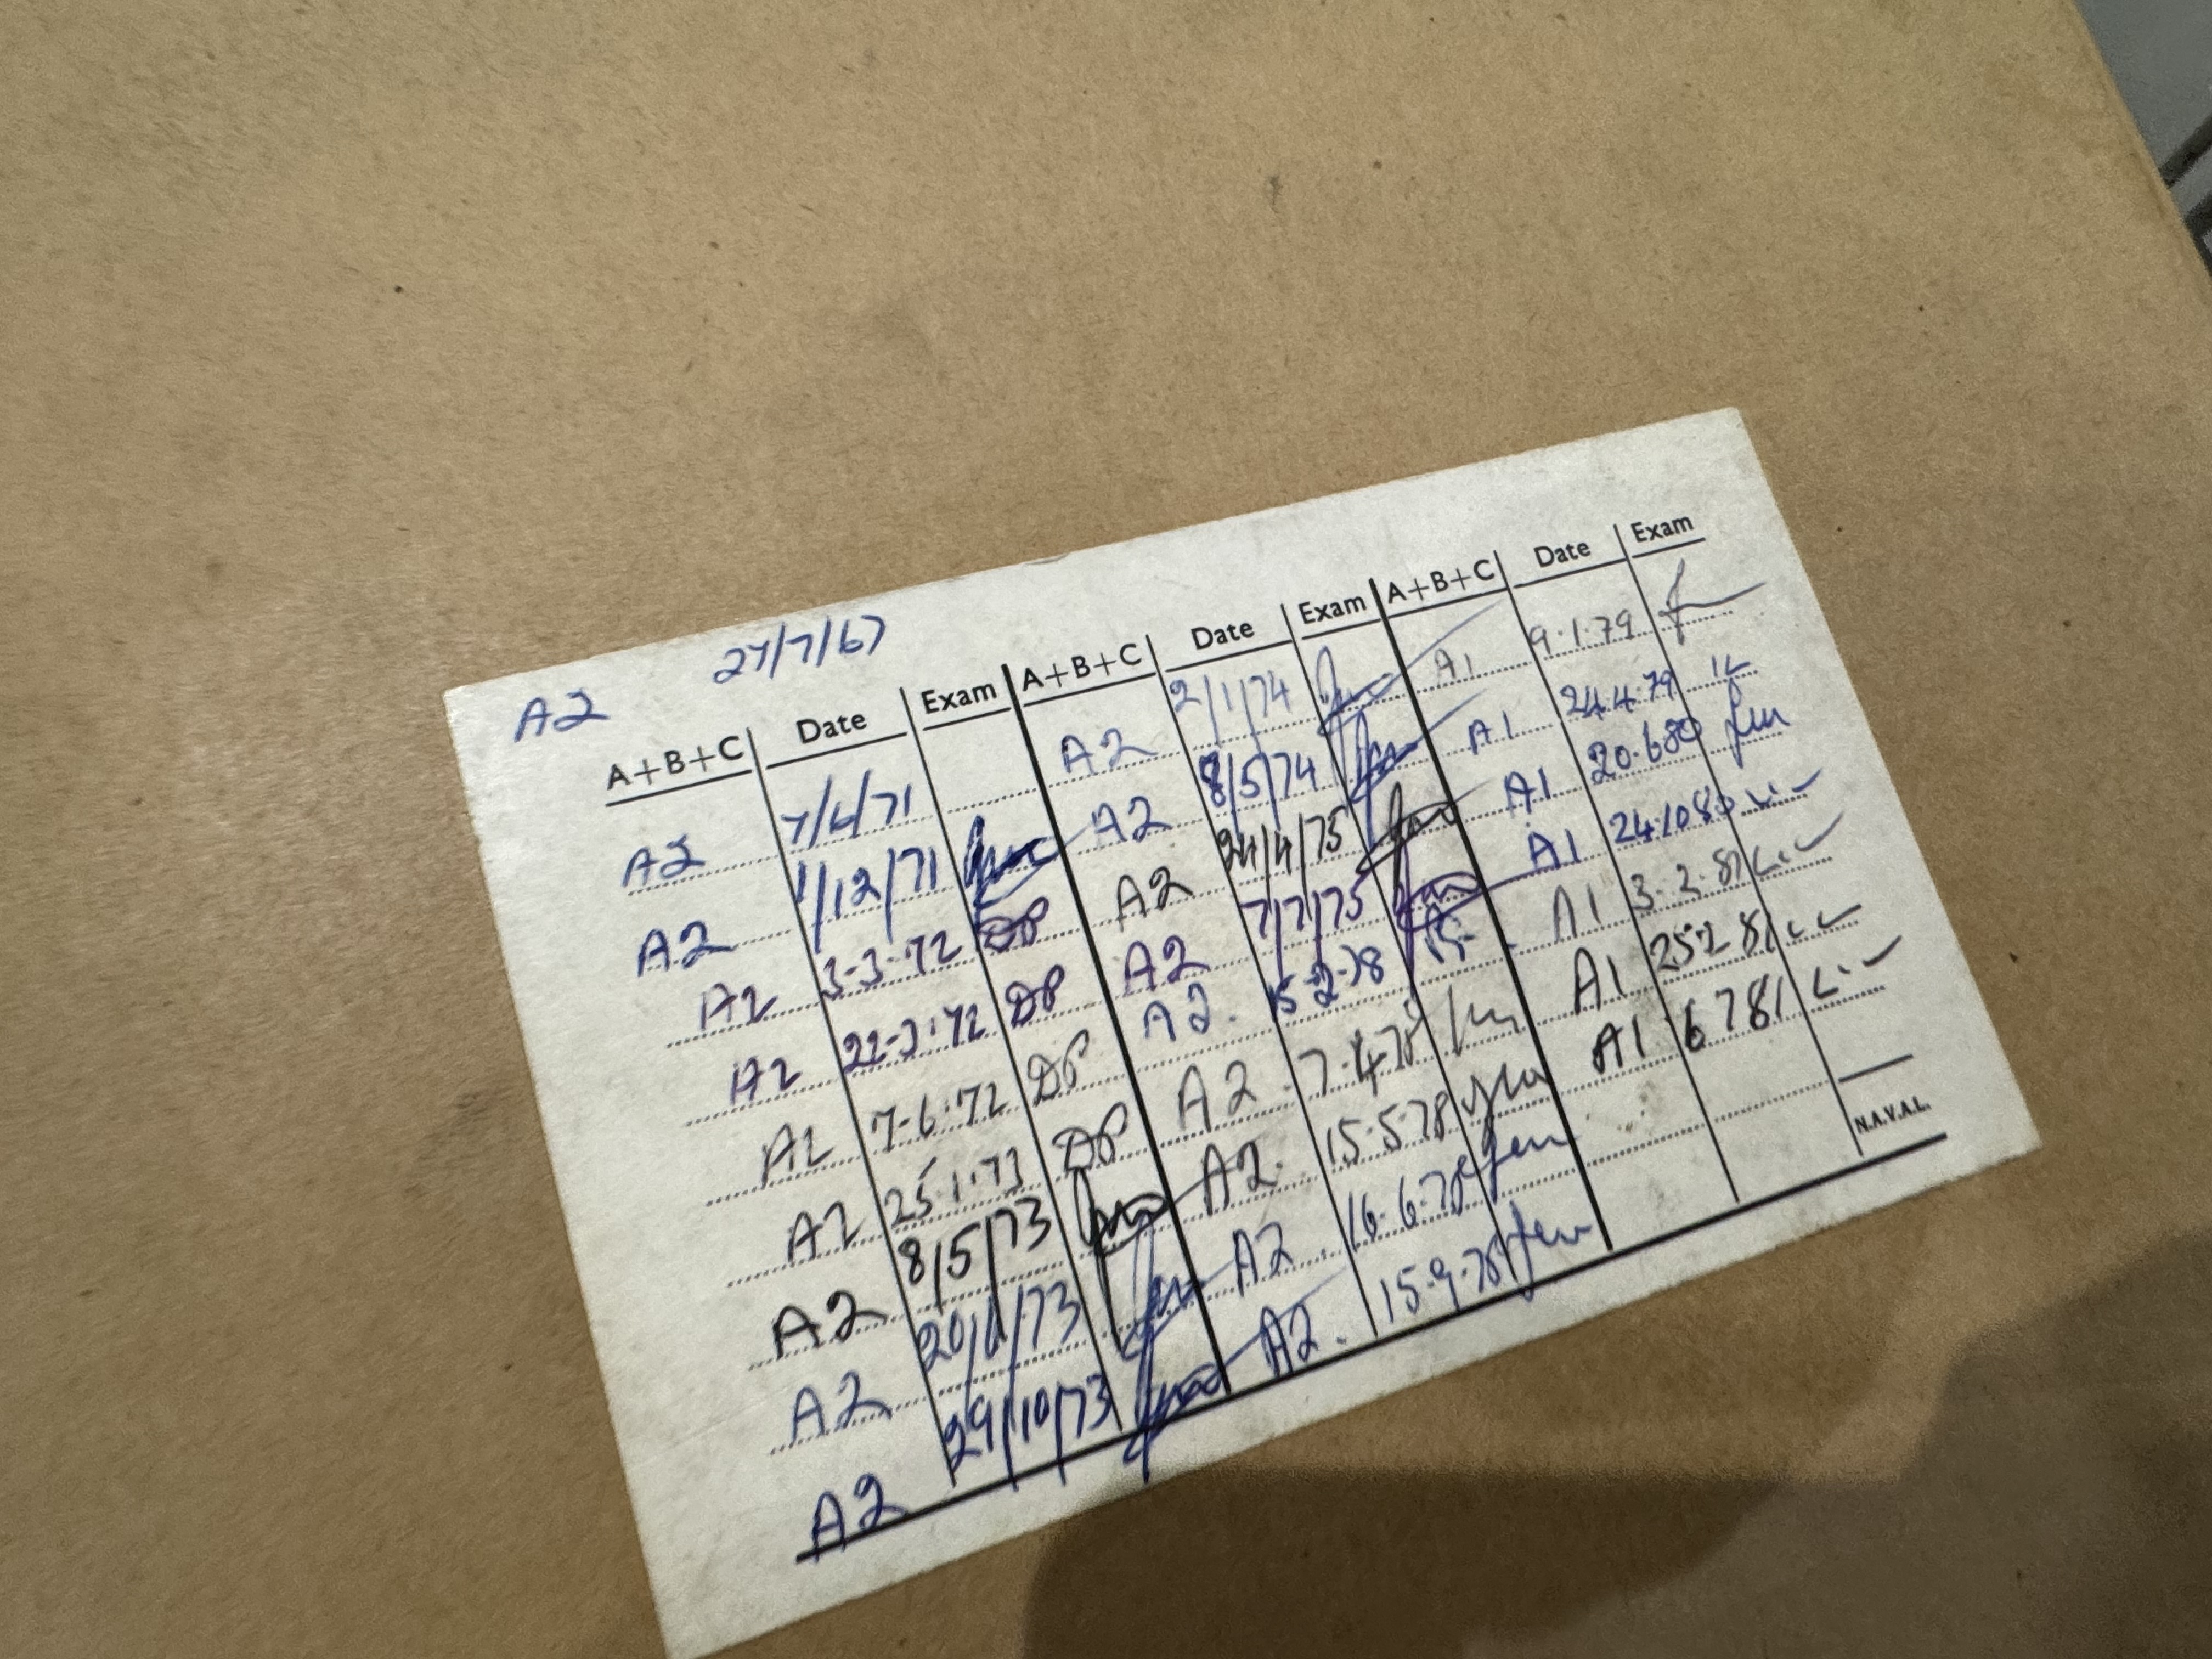 A2 27/7/67
A+B+C Date Exam A+B+C Date Exam A+B+C Date Exam
A2 7/6/71 A2 2/1/74 A1 9.1.79
A2 1/12/71 A2 8/5/74 A1 24.4.79
A2 3-3-72 DP A2 24/4/75 A1 20.680
A2 22-3-72 DP A2 7/7/75 A1 241080
A2 7-6-72 DP A2. 15-2-78 A1 3.2.81
A2 25.1.73 DP A2 7.4.78 A1 25.2 81
A2 8/5/73 A2. 15.5.78 A1 6 781
A2 20/6/73 A2 16.6.78
A2 29/10/73 A2. 15.9.78
N.A.V.A.L.